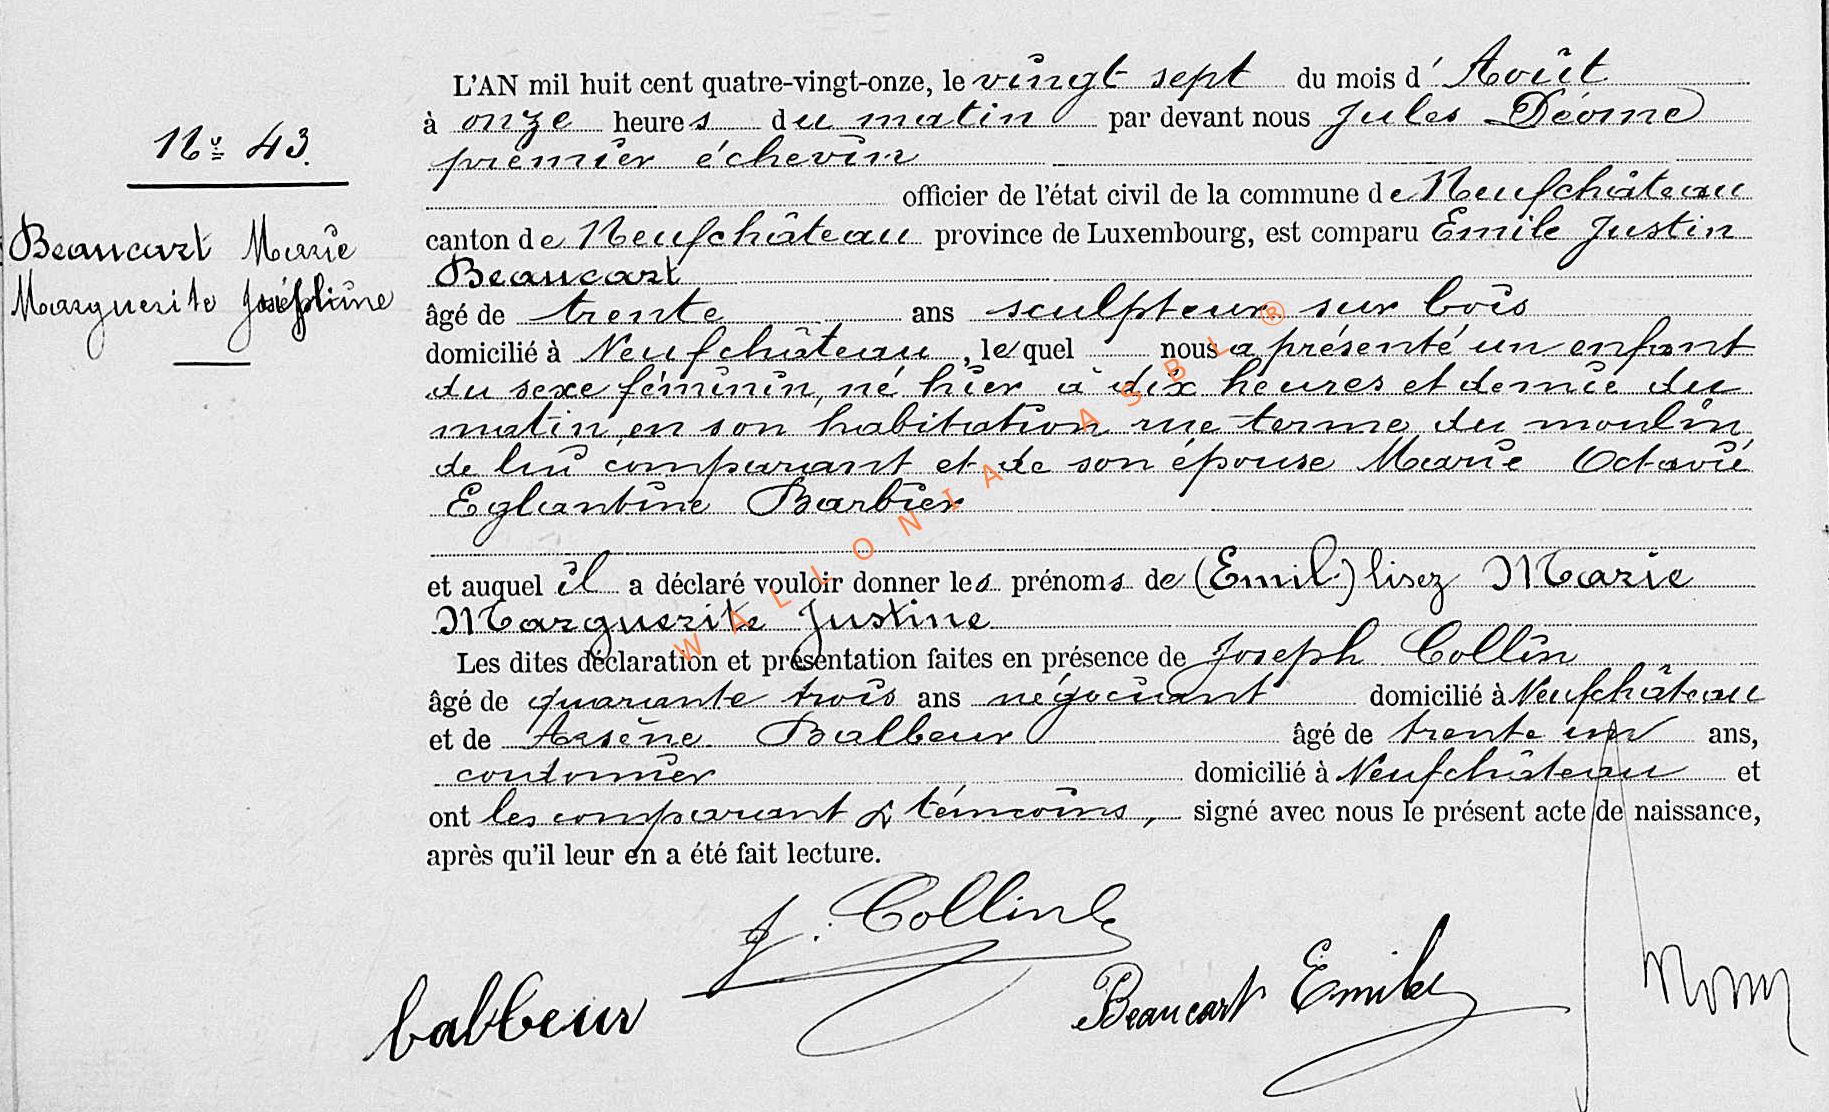 L'AN mil huit cent quatre-vingt-onze, le vingt sept du mois d' Août
à onze heures du matin par devant nous Jules Déome
premier échevin
officier de l'état civil de la commune de Neufchâteau
canton de Neufchâteau province de Luxembourg, est comparu Emile Justin
Beaucart
âgé de trente ans sculpteur sur bois
domicilié à Neufchâteau, lequel nous a présenté un enfant
du sexe féminin, né hier à dix heures et demie du
matin en son habitation rue terme du moulin
de lui comparant et de son épouse Marie Octavie
Eglantine Barbier
et auquel il a déclaré vouloir donner les prénoms de (Emil.) lisez Marie
Marguerite Justine
Les dites déclaration et présentation faites en présence de Joseph Collin
âgé de quarante trois ans négociant domicilié à Neufchâteau
et de Arsène Balbeur âgé de trente un ans,
cordonnier domicilié à Neufchâteau et
ont les comparant & témoins, signé avec nous le présent acte de naissance,
après qu'il leur en a été fait lecture.
No 43.
Beaucart Marie
Marguerite Joséphine
J. Collin
balbeur
Beaucart Emile
WALLONIA ASBL ®